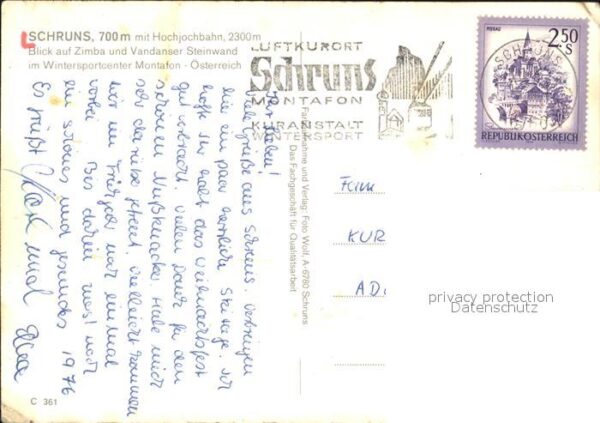 SCHRUNS, 700m mit Hochjochbahn, 2300m
Blick auf Zimba und Vandanser Steinwand
im Wintersportcenter Montafon - Österreich
LUFTKURORT
Schruns
MONTAFON
KURANSTALT
WINTERSPORT
2.50
S
REPUBLIK ÖSTERREICH
Ihr Lieben!
Viele Grüße aus Schruns. Verbringen
hier ein paar herrliche Skitage. Ich
hoffe Ihr habt das Weihnachtsfest
gut verbracht. Vielen Dank für den
schönen Nußknacker. Habe mich
sehr darüber gefreut. Vielleicht kommen
wir im Frühjahr mal einmal
vorbei. Bis dahin noch
ein schönes und gesundes 1976
Es grüßt
und
Farbaufnahme und Verlag: Foto Wolf, A-6780 Schruns
Das Fachgeschäft für Qualitätsarbeit
Fam
KUR
AD
privacy protection
Datenschutz
C 361